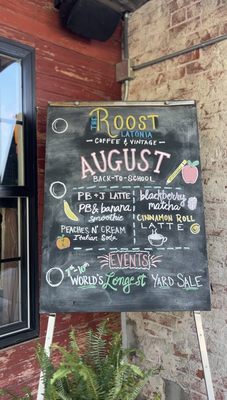 THE
Roost
LATONIA
COFFEE & VINTAGE
AUGUST
BACK-TO-SCHOOL
PB + J LATTE
PB & banana
smoothie
PEACHES N' CREAM
Italian Soda
blackberry
matcha
CINNAMON ROLL
LATTE
EVENTS
7th-10th WORLD'S Longest YARD SALE